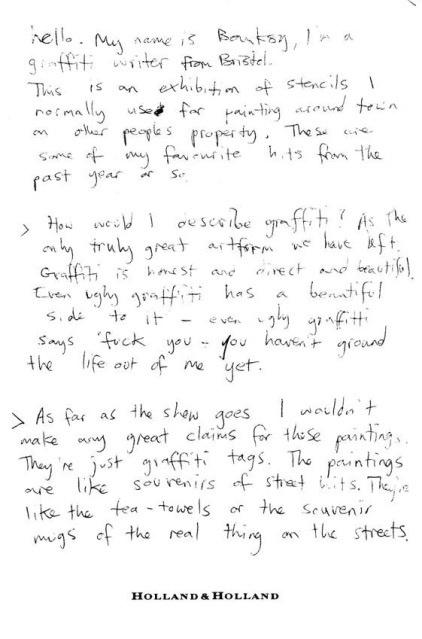 hello. My name is Banksy, I'm a
graffiti writer from Bristol.
This is an exhibition of stencils I
normally use for painting around town
on other peoples property. These are
some of my favourite hits from the
past year or so
> How would I describe graffiti? As the
only truly great artform we have left.
Graffiti is honest and direct and beautiful.
Even ugly graffiti has a beautiful
side to it - even ugly graffitti
says 'fuck you - you haven't ground
the life out of me yet.
> As far as the show goes I wouldn't
make any great claims for these paintings.
They're just graffiti tags. The paintings
are like souvenirs of street hits. They're
like the tea-towels or the souvenir
mugs of the real thing on the streets.
HOLLAND & HOLLAND